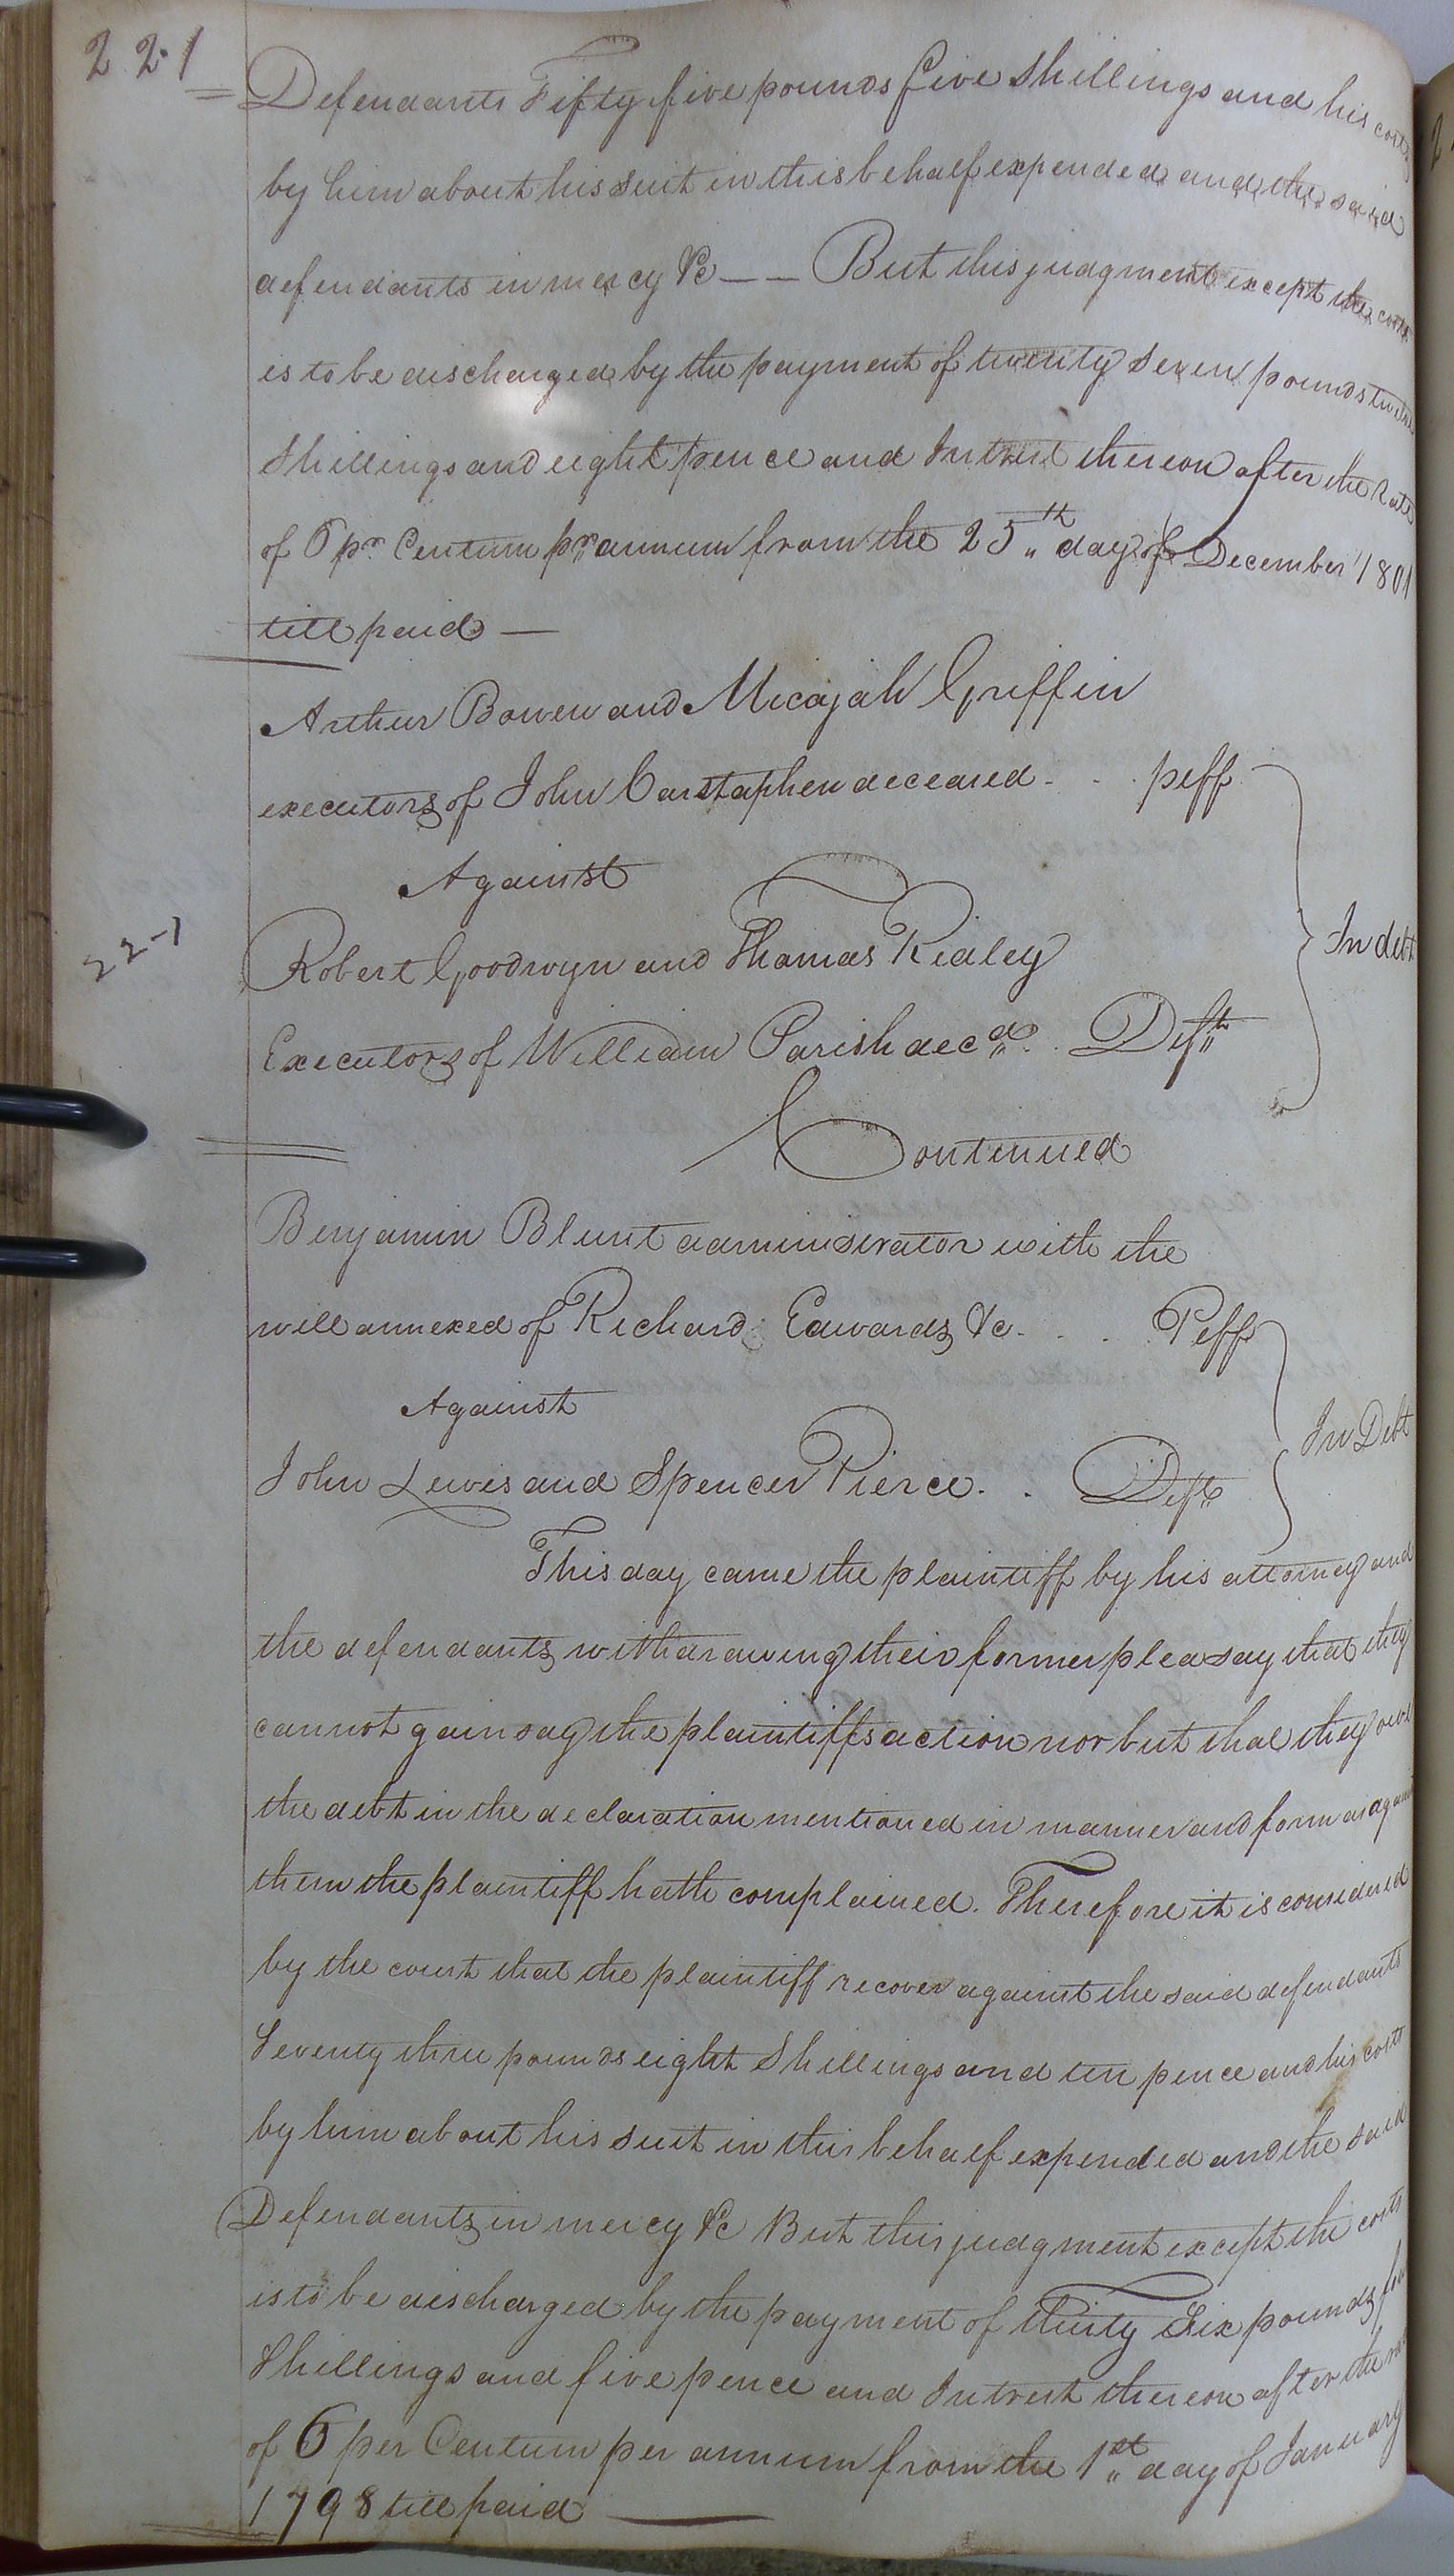 221
Defendants Fifty five pounds five Shillings and his costs
by him about his suit in this behalf expended and the said
defendants in mercy &c — — But this judgment except the costs
is to be discharged by the payment of twenty seven pounds twelve
Shillings and eight pence and Intrest thereon after the Rate
of 6 pr. Centum pr. annum from the 25th day of December 1801
till paid —
Arthur Bowen and Micajah Griffin
executors of John Carstaphen deceased - - . peff
Against
Robert Goodwyn and Thomas Ridley
Executors of William Parish decd. . Defts
In debt
22-1
Continued
Benjamin Blunt administrator with the
will annexed of Richard Edwards &c. . . . Peff
Against
John Lewis and Spencer Pierce. . Defts
In Debt
This day came the plaintiff by his attorney and
the defendants withdrawing their former plea say that they
cannot gainsay the plaintiffs action nor but that they owe
the debt in the declaration mentioned in manner and form as against
them the plaintiff hath complained. Therefore it is considered
by the court that the plaintiff recover against the said defendants
Seventy three pounds eight Shillings and ten pence and his costs
by him about his suit in this behalf expended and the said
Defendants in mercy &c But this judgment except the costs
is to be discharged by the payment of thirty Six pounds
Shillings and five pence and Intrest thereon after the rate
of 6 per Centum per annum from the 1st day of January
1798 till paid —